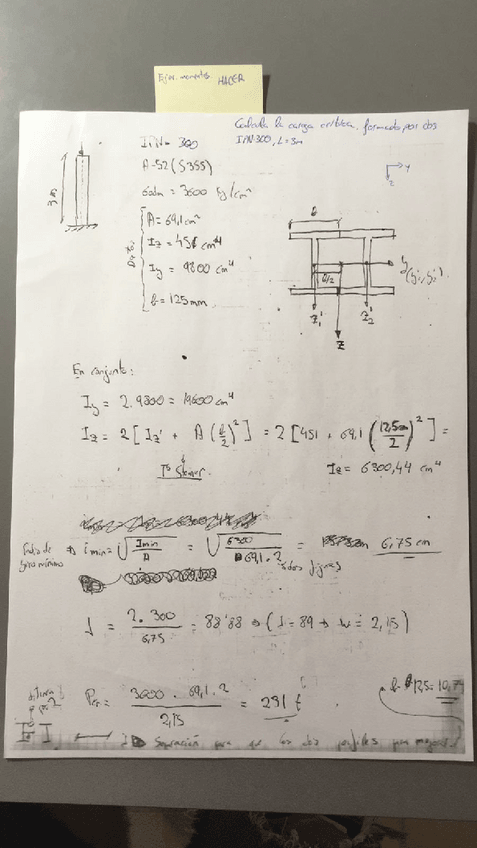 HACER
Calcula la carga crítica formado por dos
IPN 300, L = 3m
IPN = 300
A-52 (S355)
σadm = 3600 kg/cm²
3m
A = 69,1 cm²
Iz = 451 cm⁴
Iy = 9800 cm⁴
b = 125 mm
y
z
b
b/2
y
(y'1, y'2)
z'1
z'2
z
En conjunto:
Iy = 2 . 9800 = 19600 cm⁴
Iz = 2 [ Iz' + A (b/2)² ] = 2 [ 451 + 69,1 (12,5cm/2)² ] =
Tª Steiner
Iz = 6300,44 cm⁴
Radio de giro mínimo → i min = √(Imin/A) = √(6300/69,1 . 2) = 6,75 cm
λ = 2 . 300/6,75 = 88'88 → (λ = 89 → w = 2,15)
Pcr = 3600 . 69,1 . 2/2,15 = 231 t
Separación para que los dos perfiles